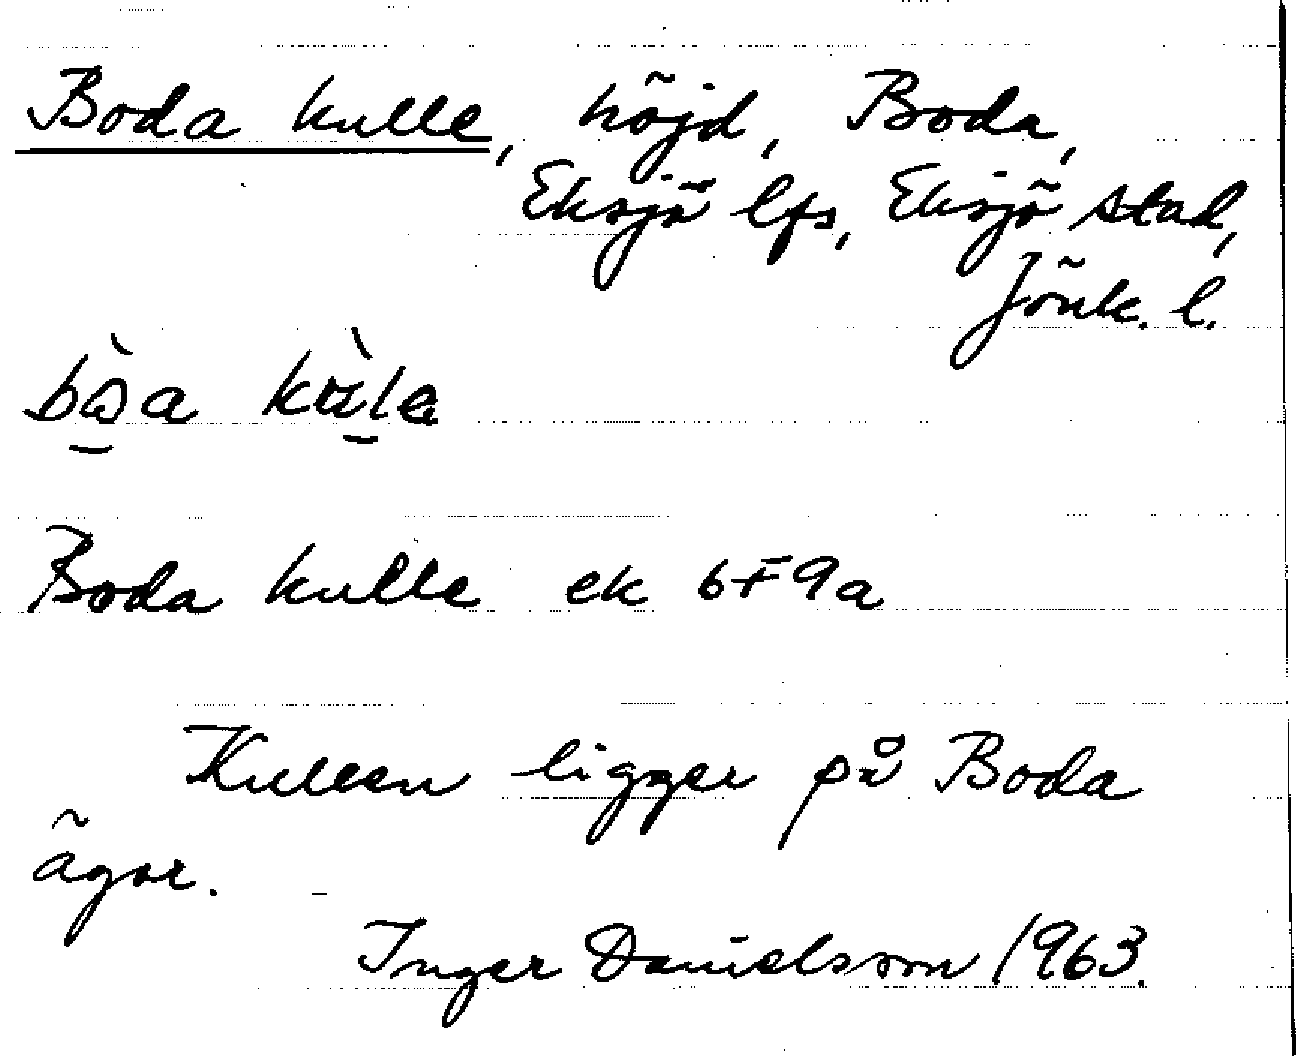 Boda kulle, höjd, Boda,
Eksjö lfs, Eksjö stad,
Jönk. l.
Boda kulle ek 6F9a
Kullen ligger på Boda
ägor.
Inger Danielsson 1963.